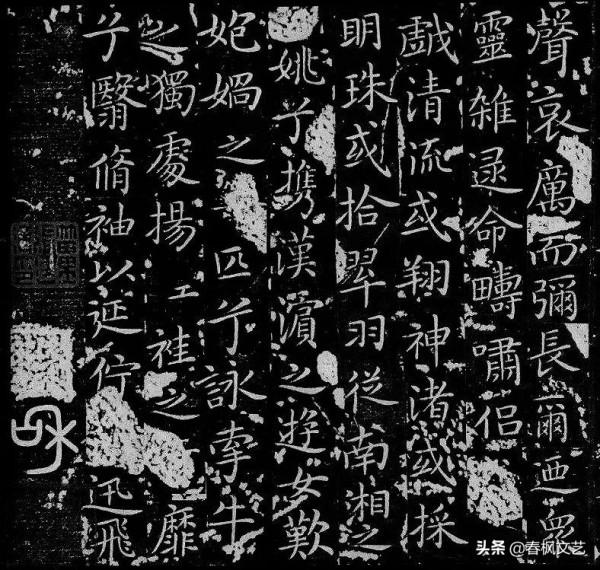 聲哀厲而彌長爾迺眾
靈雜遝命疇嘯侶
戲清流或翔神渚或採
明珠或拾翠羽從南湘之
姚兮攜漢濱之遊女歎
媧之匹兮詠牽牛
之獨處揚袿之靡
兮翳脩袖以延佇迅飛
头条 @春枫文艺